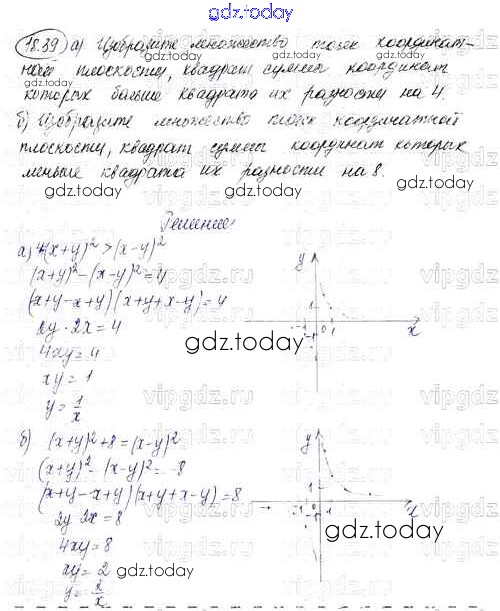 gdz.today
18.39 а) Изобразите множество точек координат-
ной плоскости, квадрат суммы координат
которых больше квадрата их разности на 4.
б) Изобразите множество точек координатной
плоскости, квадрат суммы координат которых
меньше квадрата их разности на 8.
gdz.today
gdz.today
gdz.today
Решение
а) 4(x+y)² > (x-y)²
(x+y)² - (x-y)² = 4
(x+y-x+y)(x+y+x-y) = 4
2y · 2x = 4
4xy = 4
xy = 1
y = 1/x
y
1
-1 0 1
-1
x
gdz.today
vipgdz.ru
б) (x+y)² + 8 = (x-y)²
(x+y)² - (x-y)² = -8
(x+y-x+y)(x+y+x-y) = 8
2y 2x = 8
4xy = 8
xy = 2
y = 2/x
y
1
-1 0 1
-1
x
gdz.today
gdz.today
gdz.today